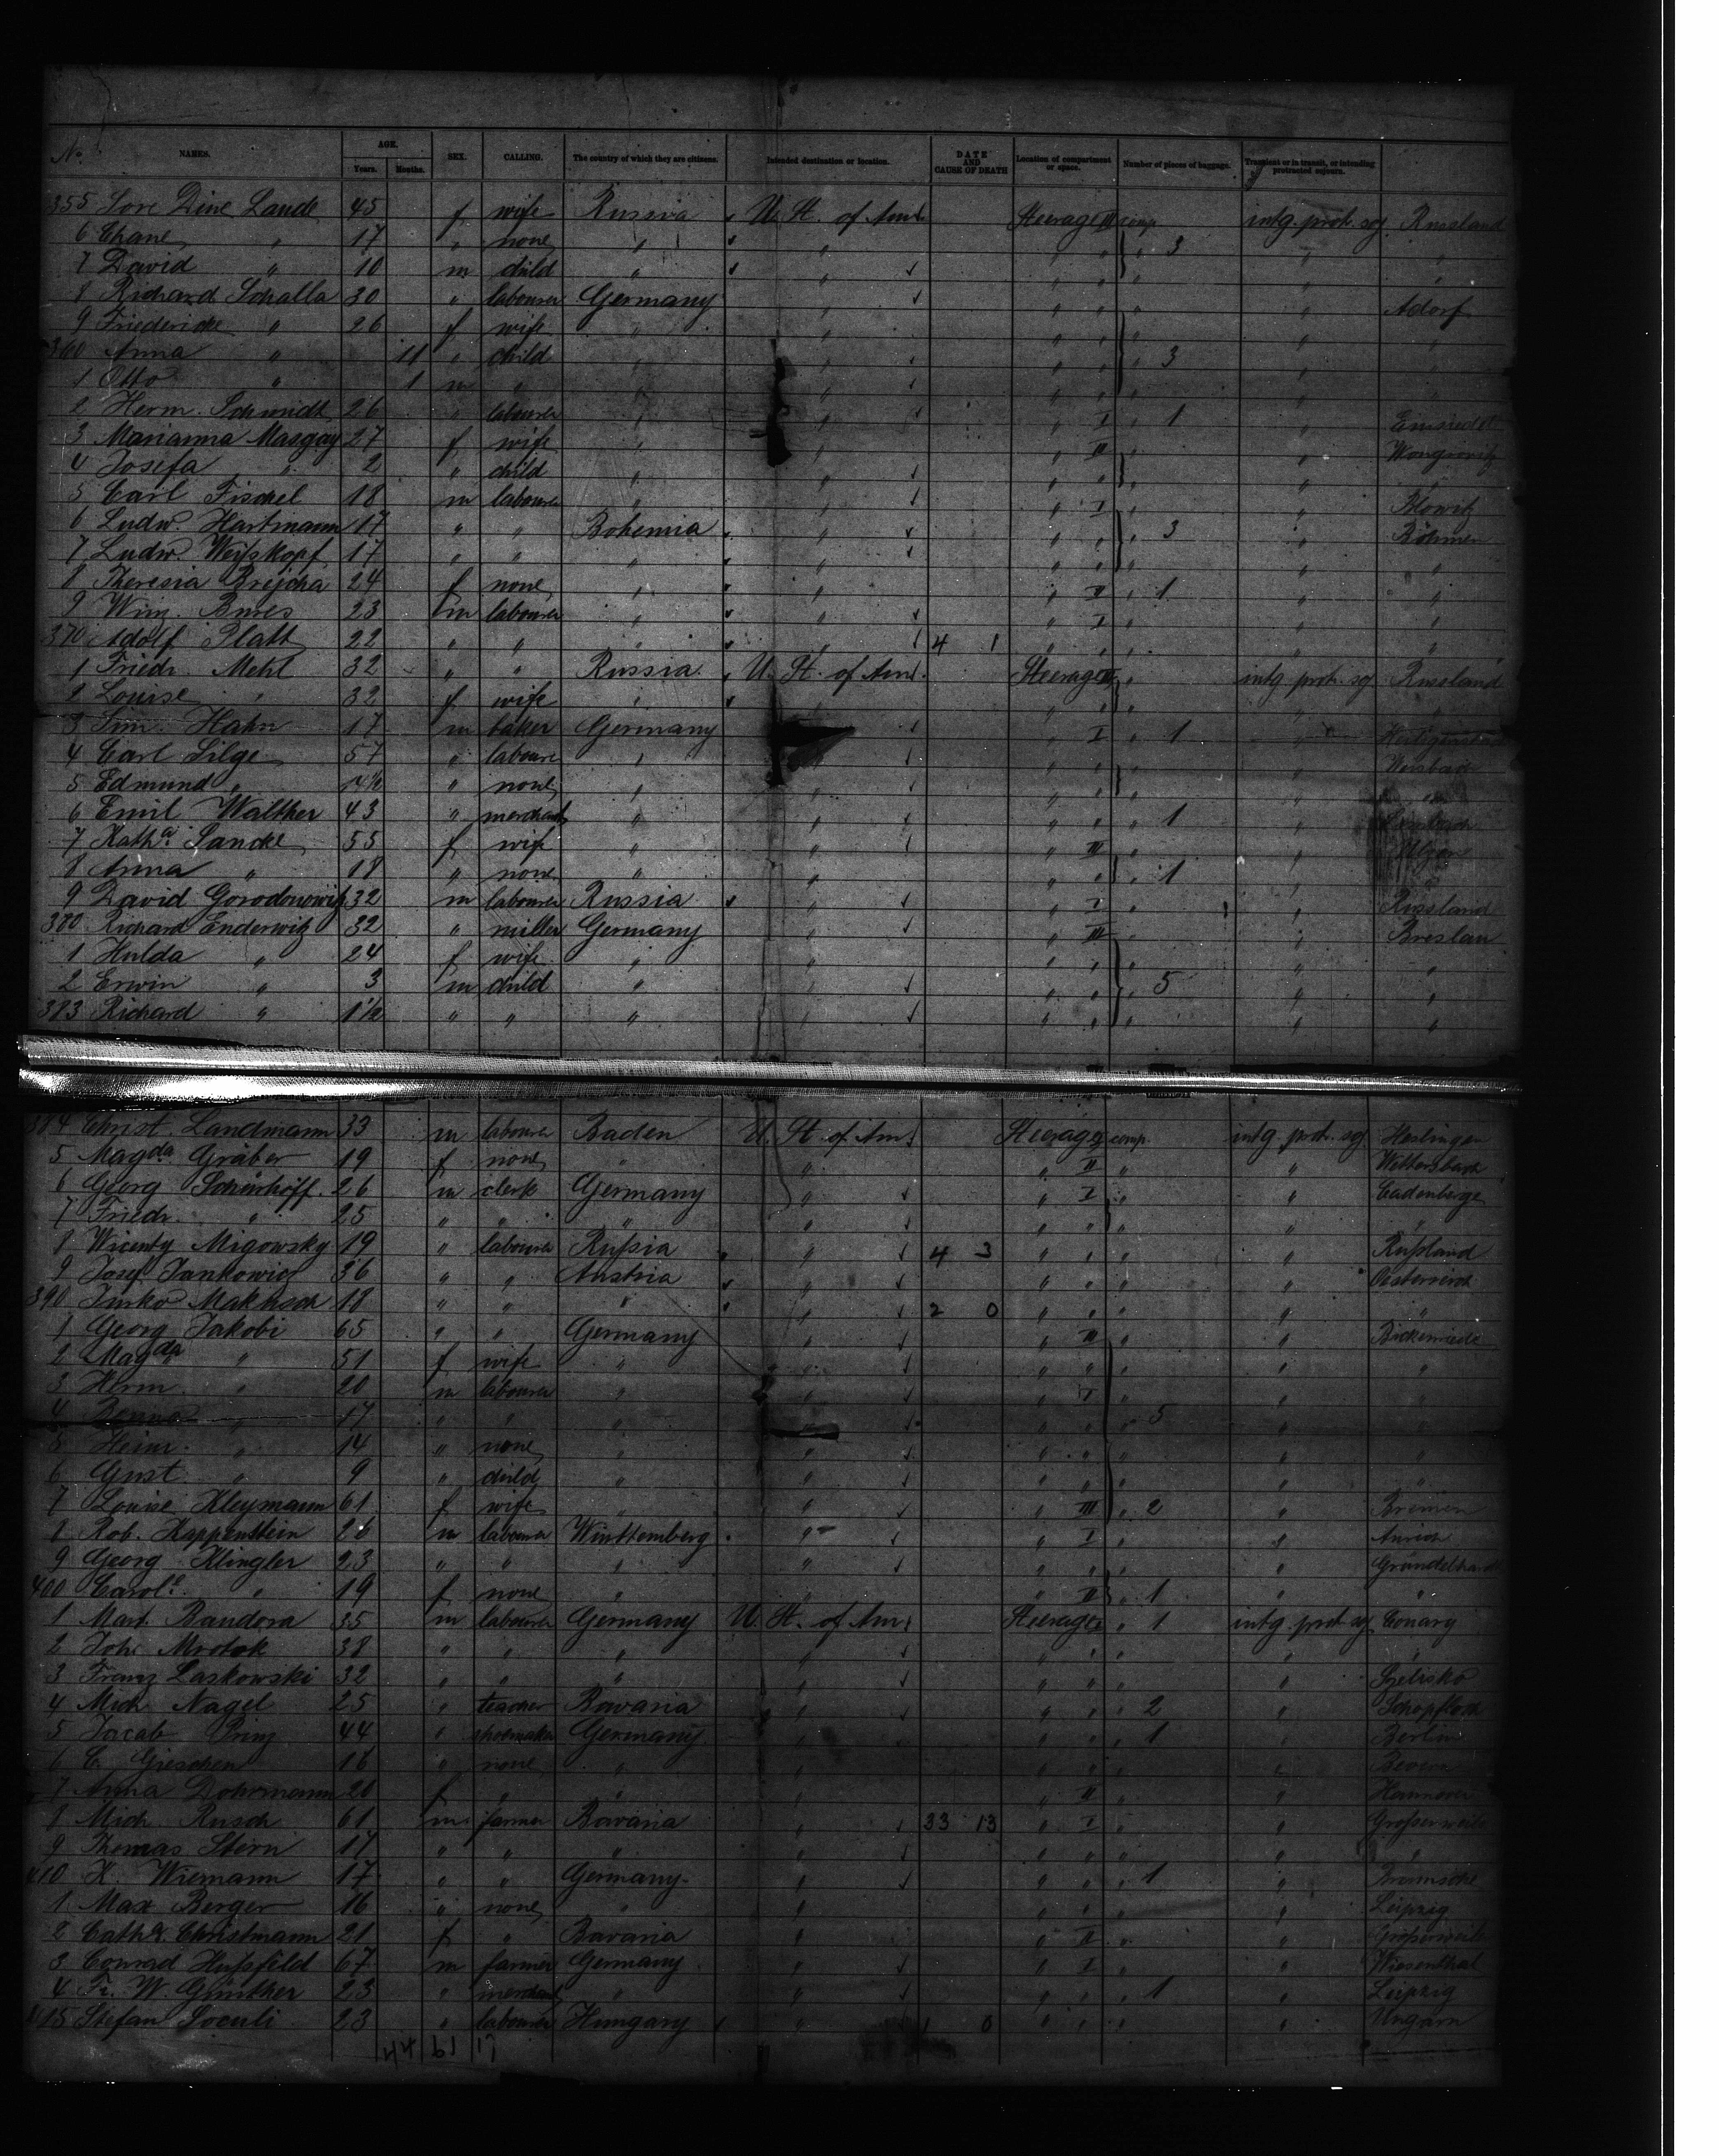 No. NAMES. AGE. Years. Months. SEX. CALLING. The country of which they are citizens. Intended destination or location. DATE AND CAUSE OF DEATH Location of compartment or space. Number of pieces of baggage. Transient or in transit, or intending protracted sojourn.
355 Sore Dine Lande 45 f wife Russia U. St. of Am. Steerage III comp. intg. prot. soj. Russland
6 Chane " 17 " none " " " " " 3 " "
7 David " 10 m child " " " " " " "
8 Richard Schalla 30 " labourer Germany " " " " " Adorf
9 Friedericke " 26 f wife " " " " " " "
360 Anna " 11 " child " " " " " 3 " "
1 Otto " 1 m " " " " " " "
2 Herm. Schmidt 26 " labourer " " " I " 1 "
3 Marianna Masgay 27 f wife " " " II " " Wongrowitz
4 Josefa " 2 " child " " " " " " "
5 Carl Fischel 18 m labourer " " " I " " Blowitz
6 Ludw. Hartmann 17 " " Bohemia " " " " 3 " Böhmen
7 Ludw. Weiskopf 17 " " " " " " " " "
8 Theresia Brejcha 24 f none " " " II " 1 " "
9 Wim. Bures 23 m labourer " " " I " " "
370 Adolf Platt 22 " " " " 4 1 " " " " "
1 Friedr. Mehl 32 " " Russia U. St. of Am. Steerage III " intg. prot. soj. Russland
2 Louise " 32 f wife " " " " " " "
3 Tim. Hahn 17 m baker Germany " " I " 1 "
4 Carl Silge 57 " labourer " " " " " " Weisbach
5 Edmund " " none " " " " " " "
6 Emil Walther 43 " merchant " " " " " 1 "
7 Katha. Sancke 55 f wife " " " III " "
8 Anna " 18 " none " " " " " 1 " "
9 David Gorodonowitz 32 m labourer Russia " " I " " Russland
380 Richard Enderwitz 32 " miller Germany " " III " " Breslau
1 Hulda " 24 f wife " " " " " " "
2 Erwin " 3 m child " " " " " 5 " "
383 Richard " 1½ " " " " " " " " "
384 Christ. Landmann 33 m labourer Baden U. St. of Am. Steerage I comp. intg. prot. soj. Heslingen
5 Magda. Gräber 19 f none " " " II " " Wettersbach
6 Georg Schierhöff. 26 m clerk Germany " " I " " Cadenberge
7 Friedr. " 25 " " " " " " " " "
8 Wicenty Migowsky 19 " labourer Rußsia " 4 3 " " " " Rußland
9 Josef Jankowicz 36 " " Austria " " " " " Oesterreich
390 Jurko Makhsch 18 " " " " 2 0 " " " " "
1 Georg Jakobi 65 " " Germany " " III " "
2 Magda " 51 f wife " " " " " " "
3 Herm. " 20 m labourer " " " I " " "
4 " 17 " " " " " " " 5 " "
5 Heinr. " 14 " none " " " " " " "
6 Gust. " 9 " child " " " " " " "
7 Louise Kleymann 61 f wife " " " III " 2 " Bremen
8 Rob. Kappenstein 26 m labourer Württemberg " " I " " Aurich
9 Georg Klingler 23 " " " " " " " " Gründelhardt
400 Carole. " 19 f none " " " II " 1 " "
1 Mart. Bandora 35 m labourer Germany U. St. of Am. Steerage I " 1 intg. prot. soj. Conary
2 Joh. Mrotok 38 " " " " " " " " "
3 Franz Laskowski 32 " " " " " " " "
4 Mich Nagel 25 " teacher Bavaria " " " " 2 " Schopfloch
5 Jacob Prinz 44 " shoemaker Germany " " " " 1 " Berlin
6 C. Gieschen 16 " none " " " " " " Bevern
7 Anna Dohrmann 20 f " " " " II " " Hannover
8 Mich. Rusch 61 m farmer Bavaria " 33 13 " I " "
9 Thomas Stern 17 " " " " " " " " "
410 H. Wiemann 17 " " Germany " " " " 1 " Bramsche
1 Max Berger 16 " none " " " " " " Leipzig
2 Catha. Christmann 21 f " Bavaria " " II " "
3 Conrad Hußfeld 67 m farmer Germany " " I " " Wiesenthal
4 Fr. W. Günther 23 " merchant " " " " " 1 " Leipzig
415 Stefan Soculi 23 " labourer Hungary " 0 " " " " Ungarn
44 61 17